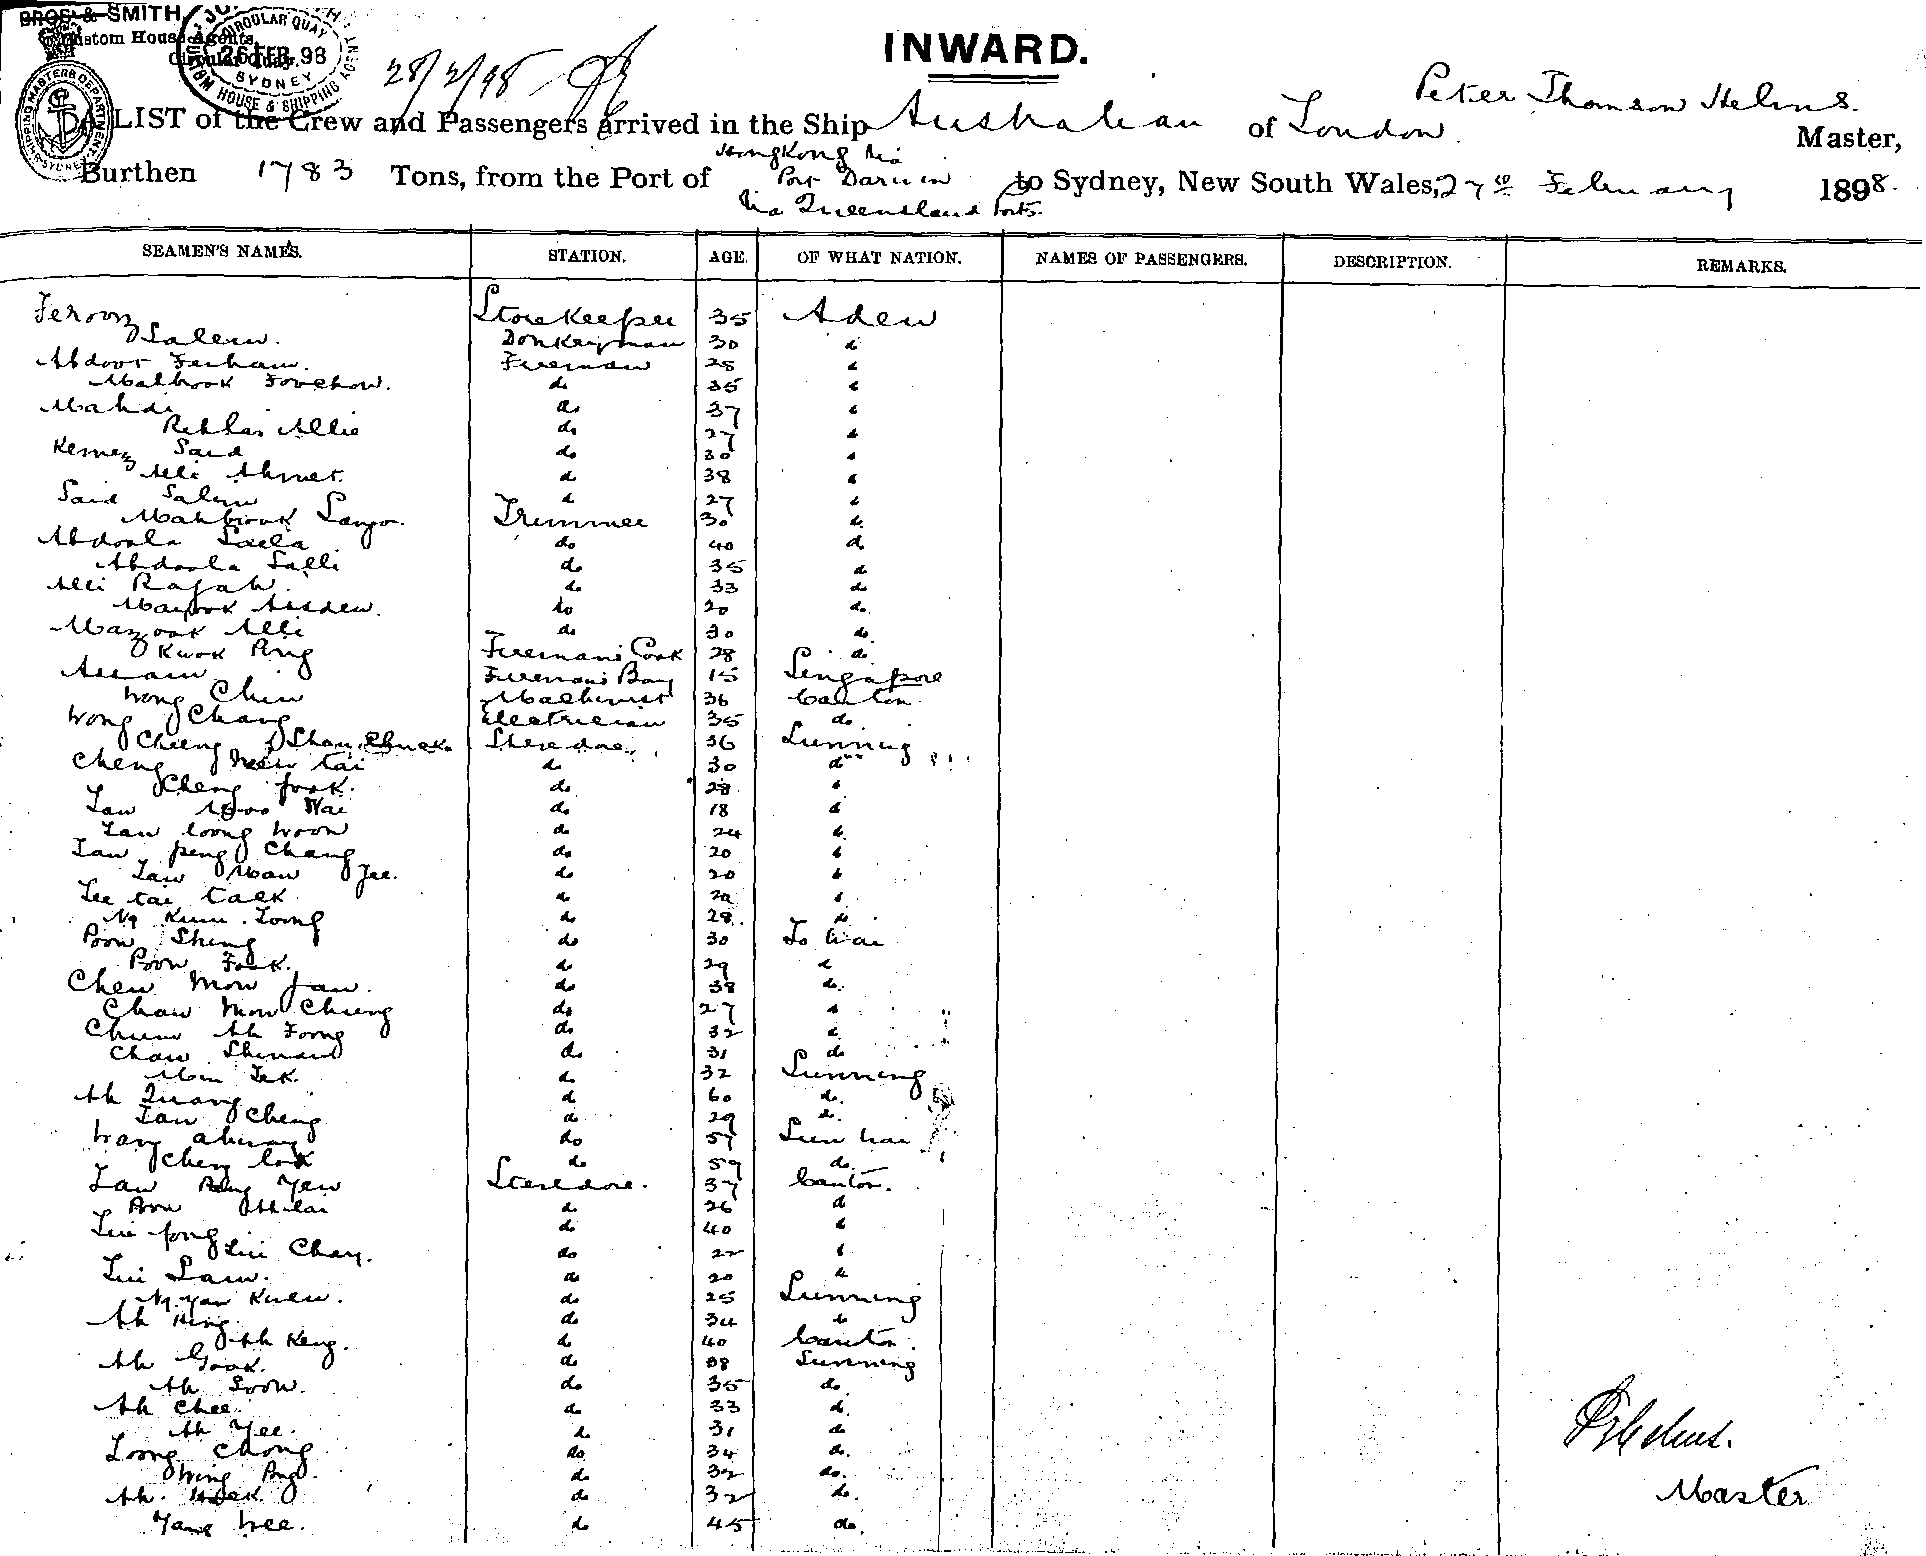 BROS & SMITH
Custom House Agents
Circular Quay.
CIRCULAR QUAY
26 FEB. 98
SYDNEY
HOUSE & SHIPPING AGENT
SHIPPING MASTERS DEPARTMENT
SYDNEY
28/2/98
INWARD.
Peter Thomson Helms.
A LIST of the Crew and Passengers arrived in the Ship Australian of London Master,
Hongkong via
Burthen 1783 Tons, from the Port of Port Darwin to Sydney, New South Wales, 27th February 1898.
Via Queensland Ports.
SEAMEN'S NAMES. STATION. AGE. OF WHAT NATION. NAMES OF PASSENGERS. DESCRIPTION. REMARKS.
Feroon Storekeeper 35 Aden
Salem. Donkeyman 30 "
Abdoor Ferham. Fireman 28 "
Mabrook Fovehow. do 35 "
Mahdi do 37 "
Allie do 27 "
Said do 30 "
Alli Ahmet. do 38 "
Said Salem do 27 "
Mahbrouk Trimmer 30 do
Abdoola Saela do 40 do
Abdoola Salli do 35 do
Alli Rajah. do 33 do
do 20 do
Mazook Alli do 30 do
Kwok Ping Fireman's Cook 28 do
Assam Fireman's Boy 15 Singapore
Wong Chin Machinist 36 Canton
Wong Chang Electrician 35 do
Cheeng Shau Chuck Stevedore 36 Sunning
Cheng New tai do 30 do
Cheng fook. do 28 "
Law Wai do 18 "
Lau loong Woon do 24 "
Lau peng Chang do 20 "
Law Maw Jee. do 20 "
Lee tai Tack do 20 "
Ng Kum Loong do 28 do
Poon Sheng do 30 To Wai
Poon Fook. do 29 do
Chew Mow Jau. do 38 do
Chaw Mow Chung do 27 "
Chum Ah Foong do 32 "
Chaw do 31 do
Mon Tek. do 32 Sunning
Ah Quang do 60 do
Lau Cheng do 29 do
Wang do 57 Sun Wai
Cheng look do 59 do
Law Peng Yew Stevedore. 37 Canton.
Poon Ah Lai do 26 do
Lui fong do 40 "
Lui Chay. do 22 "
Lui Sam. do 20 "
Ng Yan Kuen. do 25 Sunning
Ah Hing do 34 do
Ah Keng. do 40 Canton.
Ah Gook. do 38 Sunning
Ah Soon. do 35 do
Ah Chee. do 33 do
Ah Yee. do 31 do
Loong Chong do 34 do
Wing Pong. do 32 do
Ah do 32 do
Yang Wee. do 45 do
P T Helms.
Master